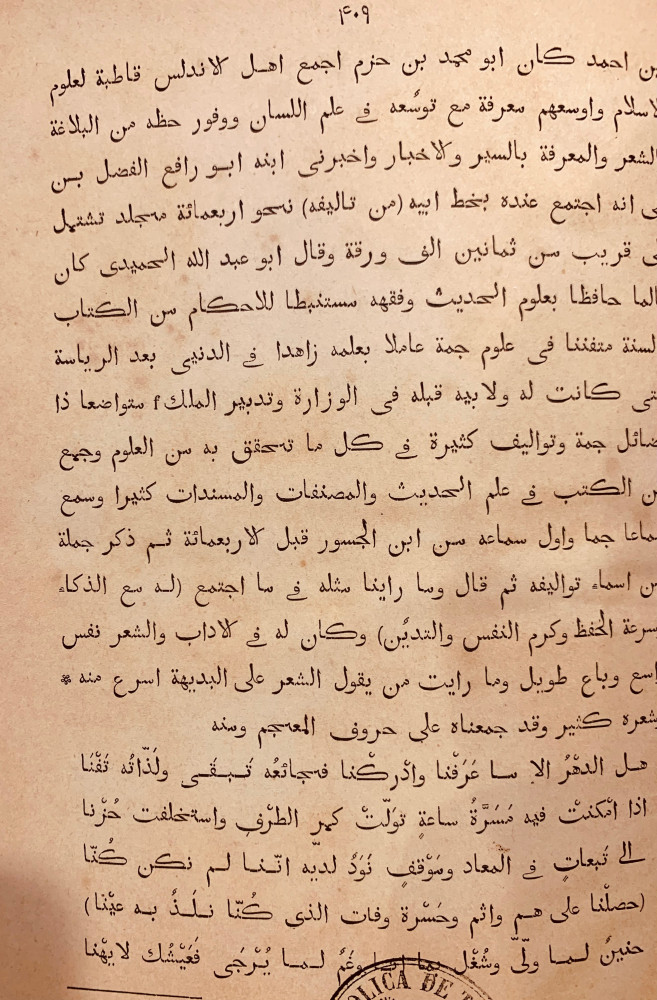 ٤٠٩
بن احمد كان ابو محمد بن حزم اجمع اهل لاندلس قاطبة لعلوم
لاسلام واوسعهم معرفة مع توسّعه في علم اللسان ووفور حظه من البلاغة
والشعر والمعرفة بالسير ولاخبار واخبرنى ابنه ابو رافع الفضل بن
انه اجتمع عنده بخط ابيه (من تاليفه) نحو اربعمائة مجلد تشتمل
قريب من ثمانين الف ورقة وقال ابو عبد الله الحميدى كان
عالما حافظا بعلوم الحديث وفقهه مستنبطا للاحكام من الكتاب
والسنة متفننا فى علوم جمة عاملا بعلمه زاهدا في الدنيى بعد الرياسة
التى كانت له ولابيه قبله فى الوزارة وتدبير الملك f متواضعا ذا
فضائل جمة وتواليف كثيرة في كل ما تحقق به من العلوم وجمع
من الكتب في علم الحديث والمصنفات والمسندات كثيرا وسمع
سماعا جما واول سماعه من ابن الجسور قبل لاربعمائة ثم ذكر جملة
من اسماء تواليفه ثم قال وما راينا مثله في ما اجتمع (له مع الذكاء
وسرعة الحفظ وكرم النفس والتديّن) وكان له في لاداب والشعر نفس
واسع وباع طويل وما رايت من يقول الشعر على البديهة اسرع منه *
وشعره كثير وقد جمعناه على حروف المعجم ومنه
هل الدهْرُ الا ما عَرَفْنا وادْركْنا فجائعُه تَبقَى ولَذّاتُه تَفْنَا
اذا امْكنتْ فيه مَسَرَّةُ ساعةٍ تولّتْ كمر الطرْفِ واستخلفت حُزْنا
الى تَبعاتٍ في المعاد ومَوْقفٍ نَوَدُّ لديْه انّنا لم نكن كُنّا
(حصلْنا على هم واثم وحَسْرة وفات الذى كُنّا نلَذُّ به عيْنا)
حنينٌ لما ولّى وشُغْل بما وغَمٌ لما يُرْجَى فَعَيْشُك لايهْنا
OLICA DE